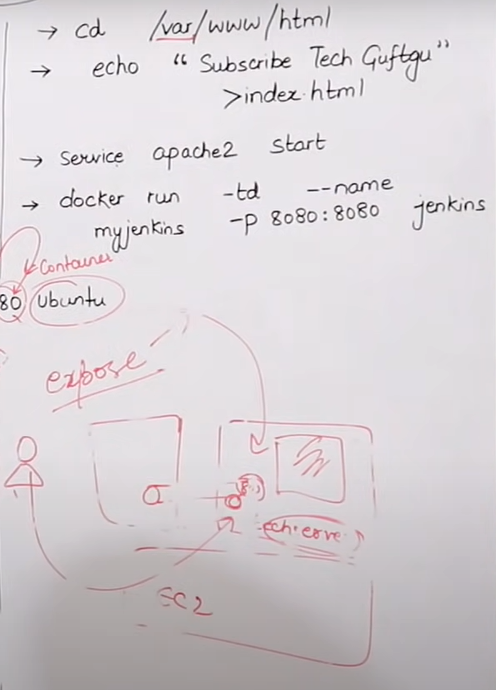 → cd /var/www/html
→ echo "Subscribe Tech Guftgu"
>index.html
→ service apache2 start
→ docker run -td --name
myjenkins -p 8080:8080 jenkins
Container
80 Ubuntu
expose
EC2